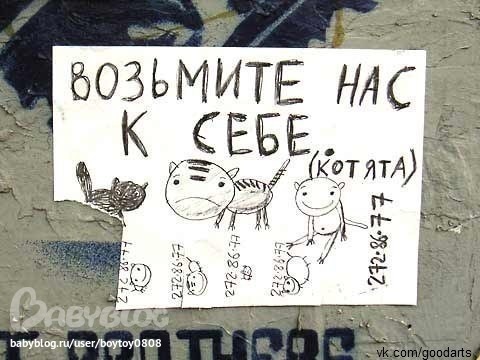 ВОЗЬМИТЕ НАС
К СЕБЕ.
(КОТЯТА)
272-86-77
272-86-77
272-86-77
272-86-77
BABYBLOG
babyblog.ru/user/boytoy0808
vk.com/goodarts